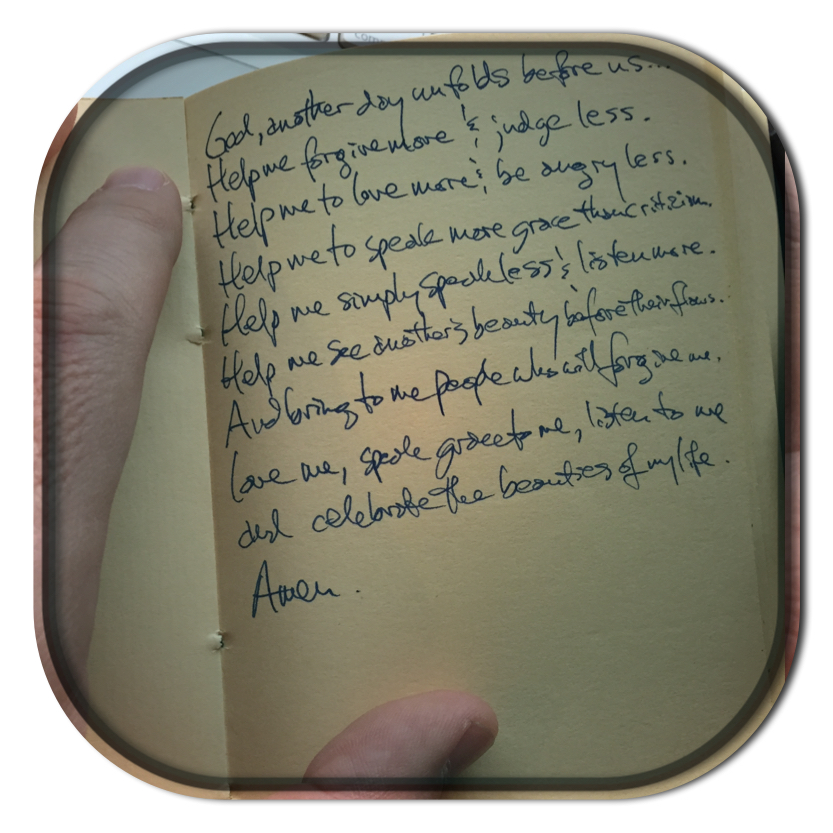 God, another day unfolds before us...
Help me forgive more & judge less.
Help me to love more & be angry less.
Help me to speak more grace than critizim.
Help me simply speak less & listen more.
Help me see another's beauty before their flaws.
And bring to me people who will forgive me,
love me, speak grace to me, listen to me
and celebrate the beauties of my life.
Amen.